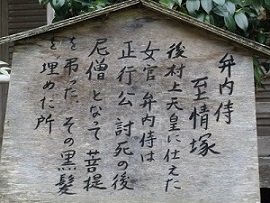 弁内侍
至情塚
後村上天皇に仕えた
女官 弁内侍は
正行公 討死の後
尼僧となって菩提
を弔った、その黒髪
を埋めた所